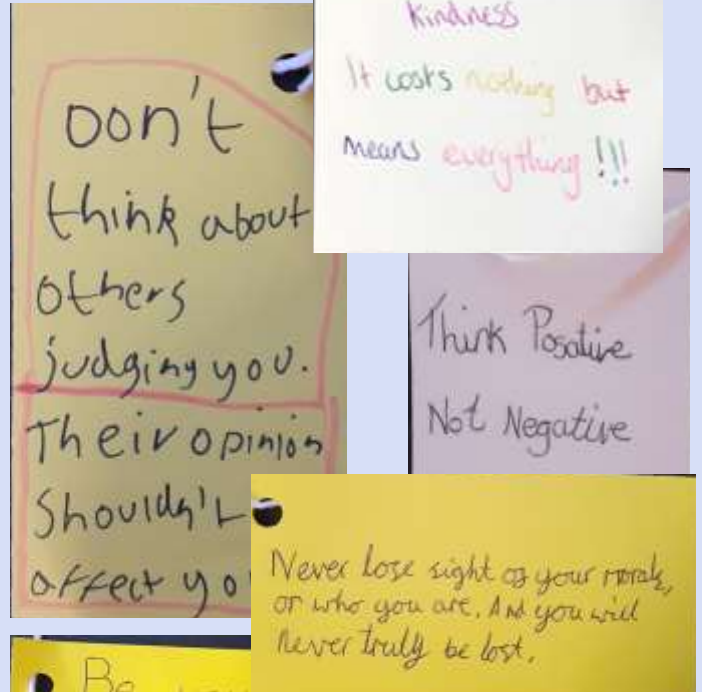 Don't
think about
others
judging you.
Their opinion
Shouldn't
affect
Kindness
It costs nothing but
means everything !!!
Think Posative
Not Negative
Never lose sight of your morals,
or who you are. And you will
never truly be lost.
Be